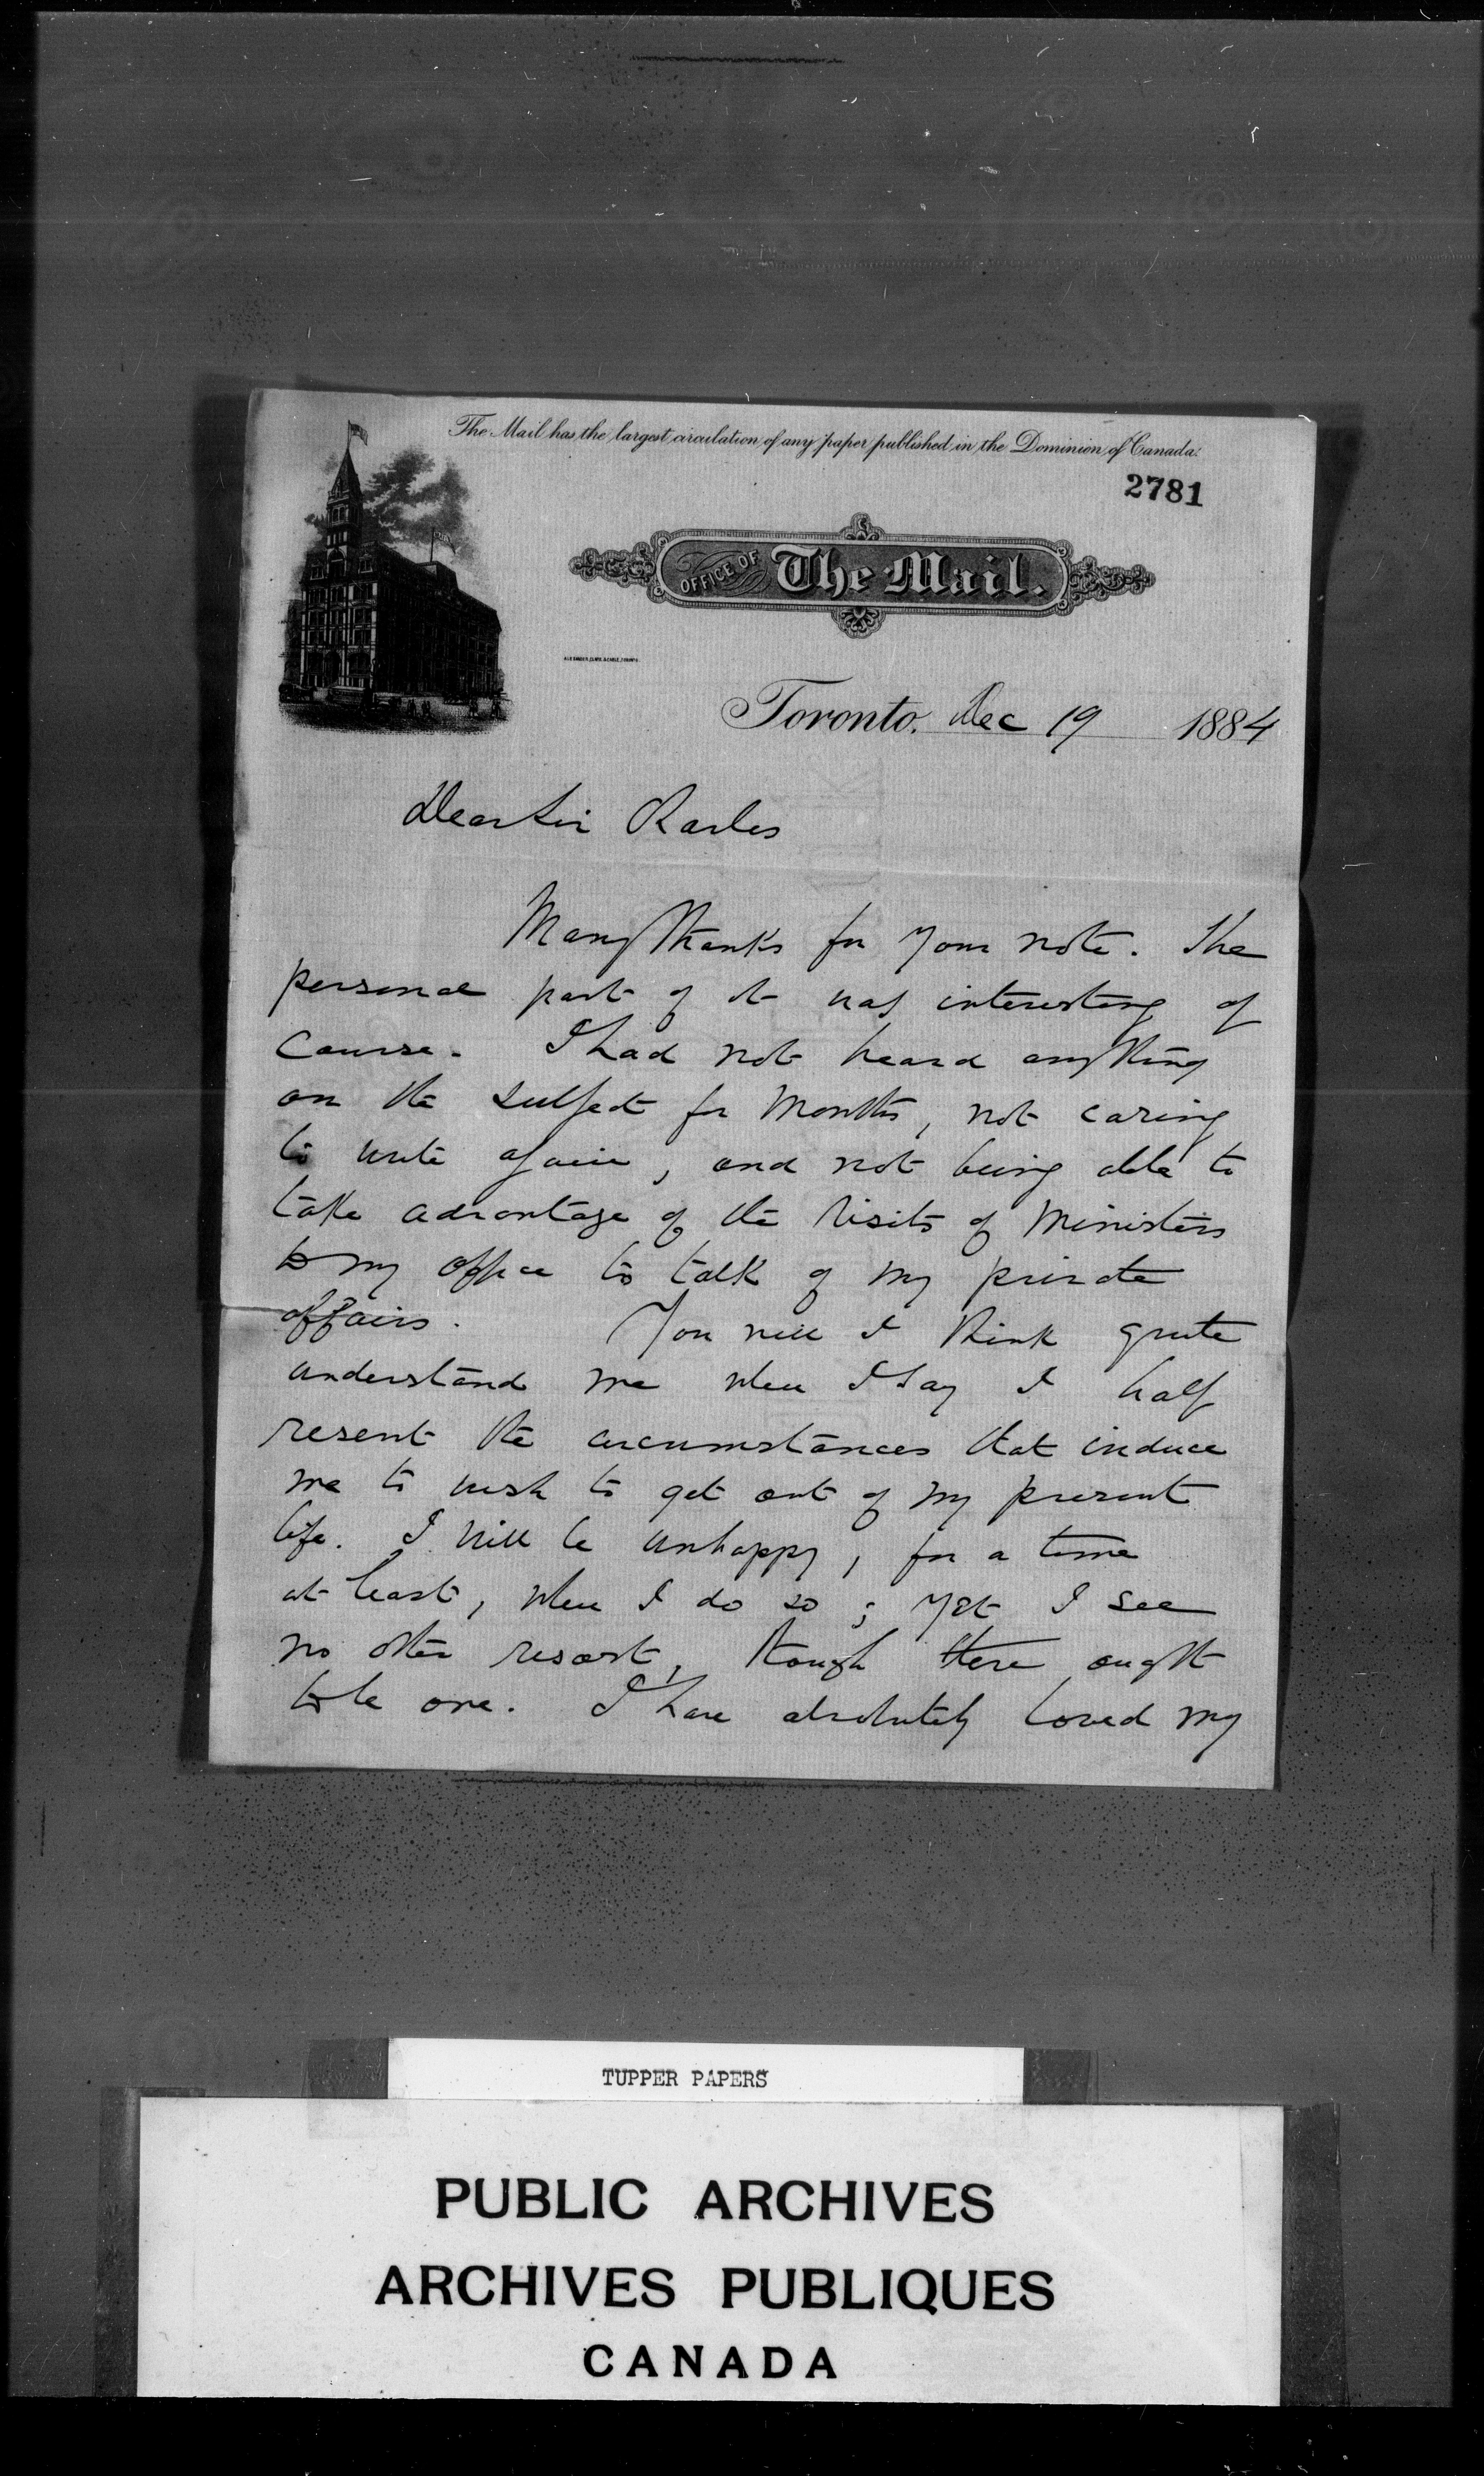 The Mail has the largest circulation of any paper published in the Dominion of Canada.
2781
OFFICE OF The Mail.
Toronto, Dec 19 1884
Dear Sir Charles
Many thanks for your note. The
personal part of it was interesting of
course. I had not heard anything
on the subject for months, not caring
to write again, and not being able to
take advantage of the visits of Ministers
to my office to talk of my private
affairs. You will I think quite
understand me when I say I half
resent the circumstances that induce
me to wish to get out of my present
life. I will be unhappy, for a time
at least, when I do so; yet I see
no other resort, though there ought
to be one. I have absolutely loved my
TUPPER PAPERS
PUBLIC ARCHIVES
ARCHIVES PUBLIQUES
CANADA